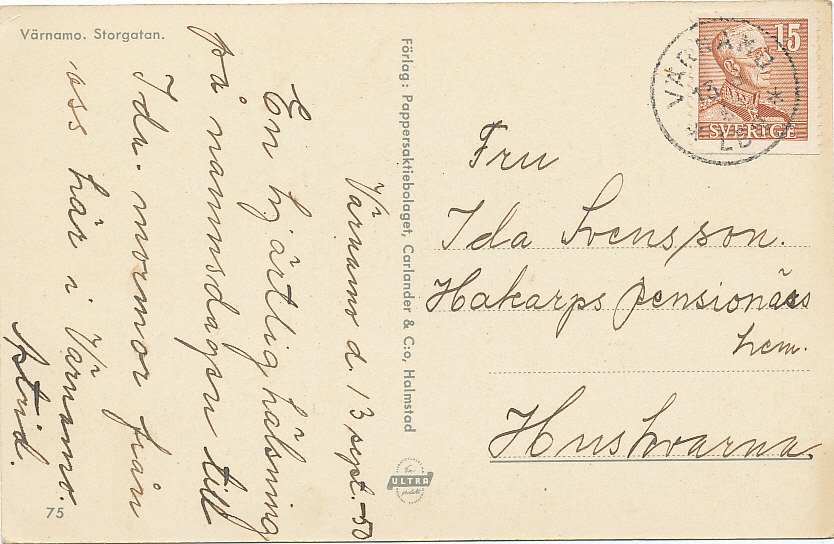 Värnamo. Storgatan.
Värnamo d. 13 sept. -50
En hjärtlig hälsning
på namnsdagen till
Ida. mormor från
oss här i Värnamo.
Astrid.
75
Förlag: Pappersaktiebolaget, Carlander & C:o, Halmstad
ULTRA
VÄRNAMO
15
SVERIGE
Fru
Ida Svensson.
Hakarps pensionärs
hem.
Huskvarna